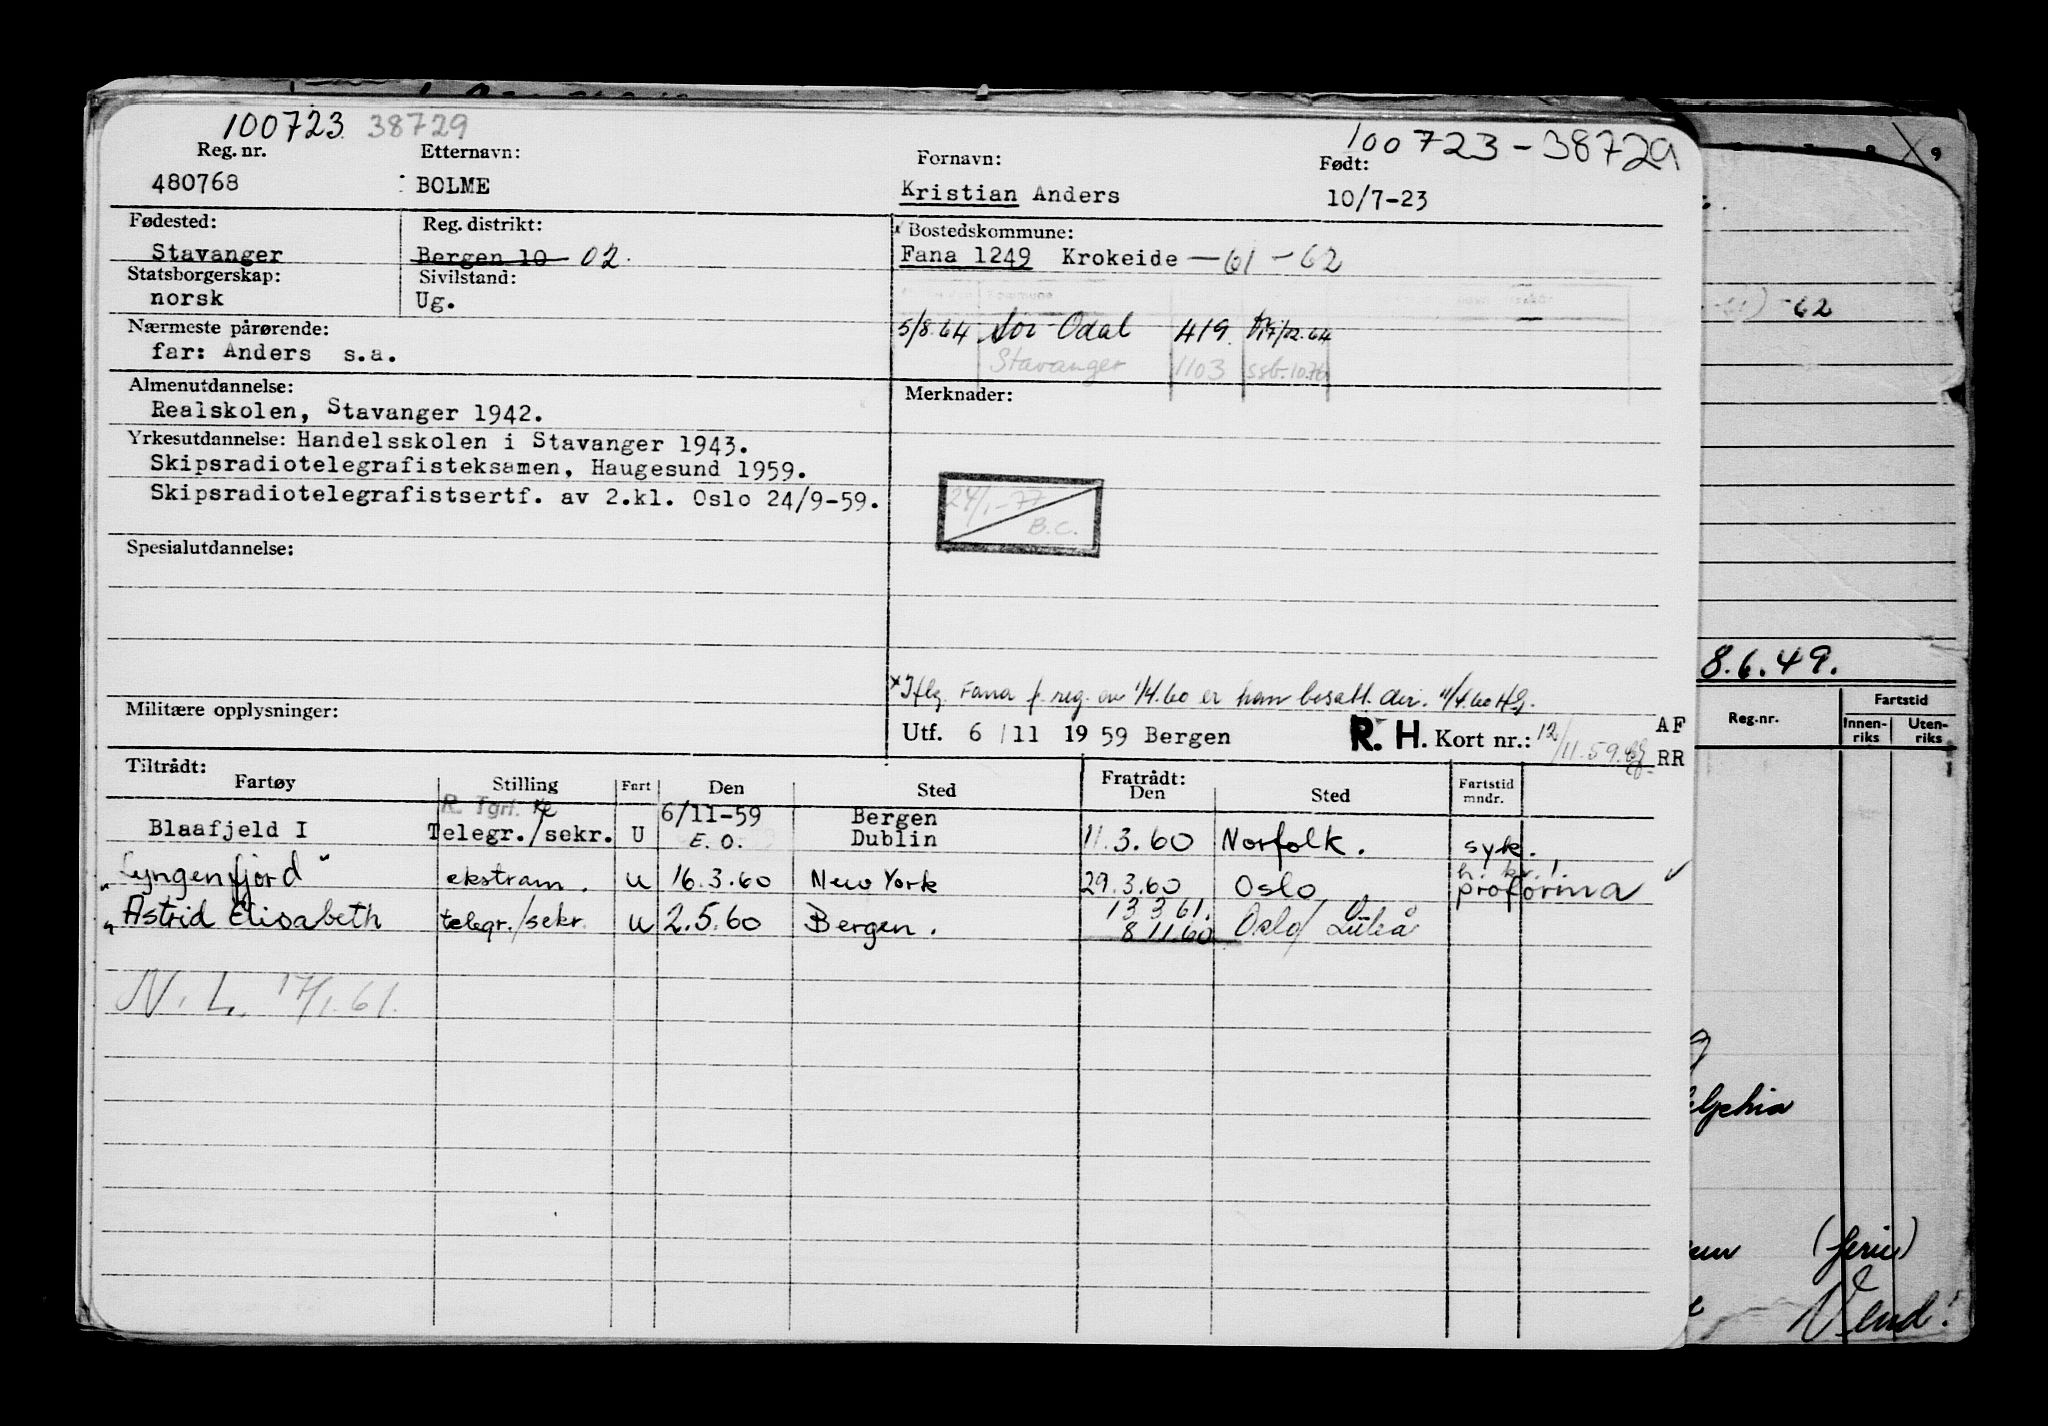 100723 38729
100723-38729
Reg. nr. Etternavn: Fornavn: Født:
480768 BOLME Kristian Anders 10/7-23
Fødested: Reg. distrikt: Bostedskommune:
Stavanger Bergen 10 02. Fana 1249 Krokeide — 61 - 62
Statsborgerskap: Sivilstand:
norsk Ug.
Nærmeste pårørende: 5/8.64 Sør-Odal 419
far: Anders s.a. Stavanger 1103 ssb. 10.76
Almenutdannelse: Merknader:
Realskolen, Stavanger 1942.
Yrkesutdannelse: Handelsskolen i Stavanger 1943.
Skipsradiotelegrafisteksamen, Haugesund 1959.
Skipsradiotelegrafistsertf. av 2.kl. Oslo 24/9-59.
24/1-77
B.C.
Spesialutdannelse:
x Iflg. Fana f.reg. av 1/4.60 er han bosatt der. 11/4.60 HG.
Militære opplysninger: Utf. 6/11 1959 Bergen R. H. Kort nr.: 12/11.59. AF
RR
Tiltrådt: Fratrådt:
Fartøy Stilling Fart Den Sted Den Sted Fartstid mndr.
R. Tgrf.
6/11-59 Bergen
Blaafjeld I Telegr./sekr. U E.O. Dublin 11.3.60 Norfolk. syk.
h. kr. 1.
"Lyngenfjord" ekstram. U 16.3.60 New York 29.3.60 Oslo proforma
13 3 61.
"Astrid Elisabeth telegr./sekr. U 2.5.60 Bergen. 8 11.60 Oslo/ Luleå
N. L. 17/1.61.
9
-62
8.6.49.
Reg.nr. Fartstid
Innen-riks Uten-riks
(ferie)
Vend!